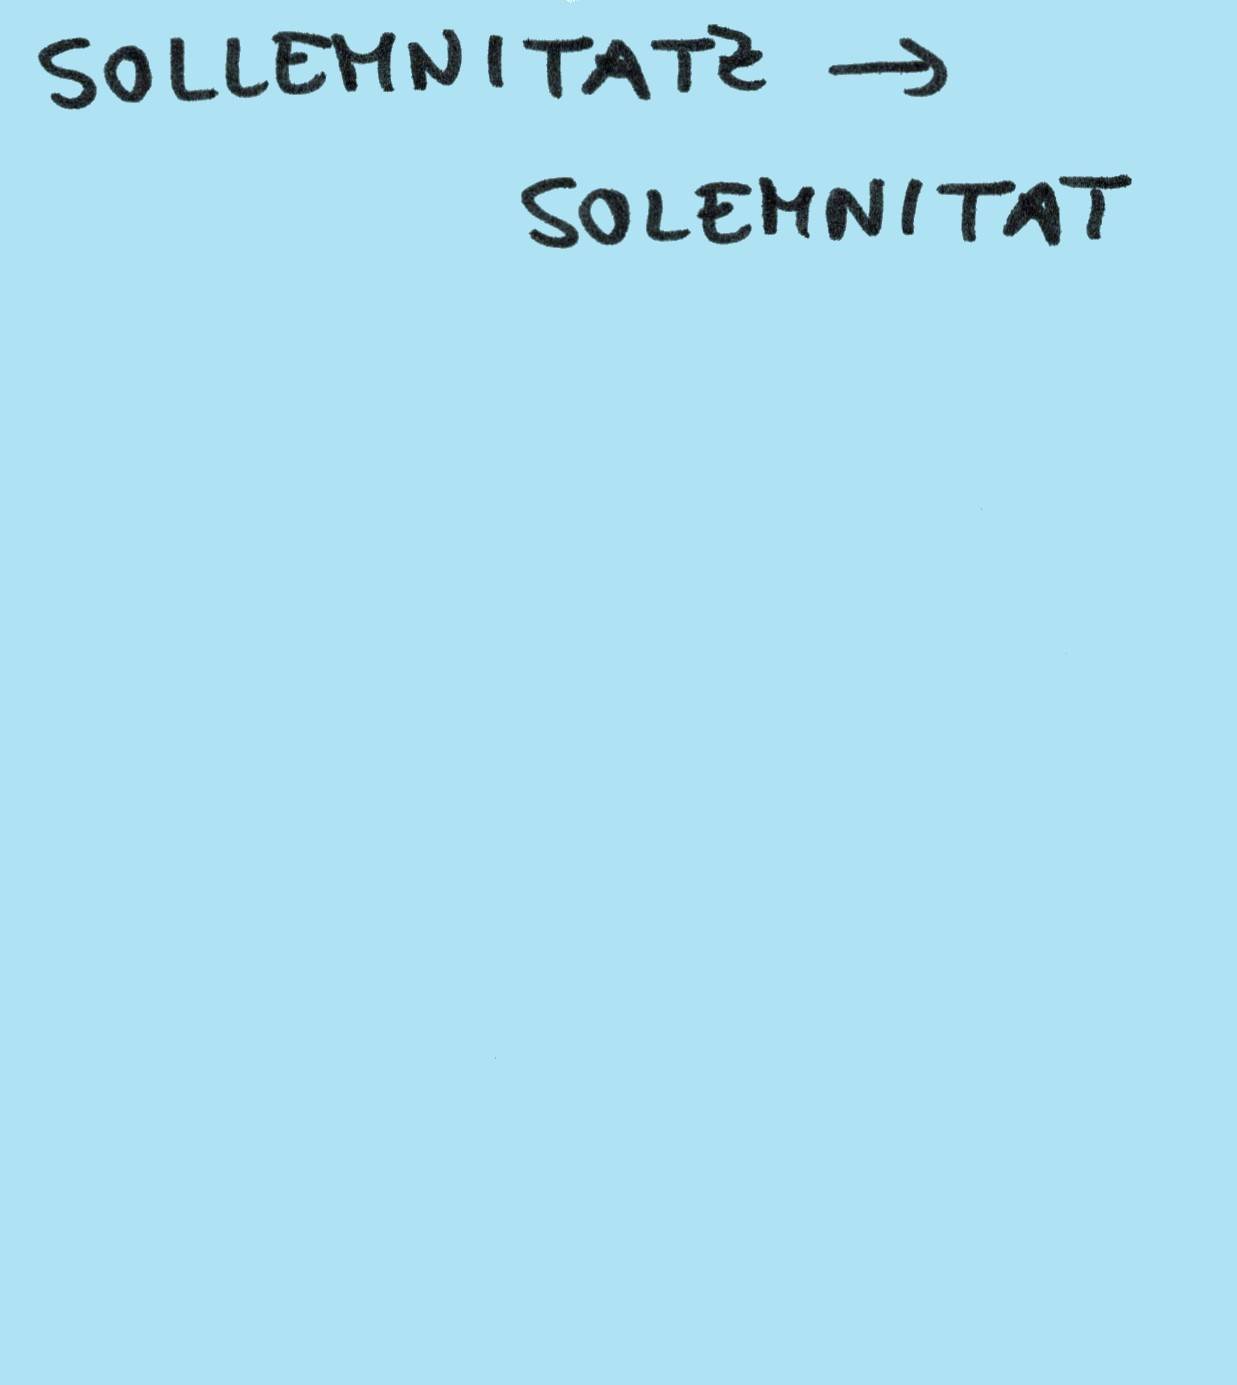 SOLLEMNITATZ →
SOLEMNITAT